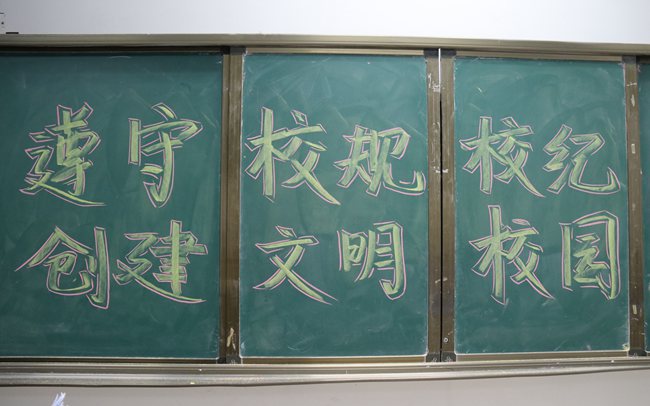 遵守校规校纪
创建文明校园